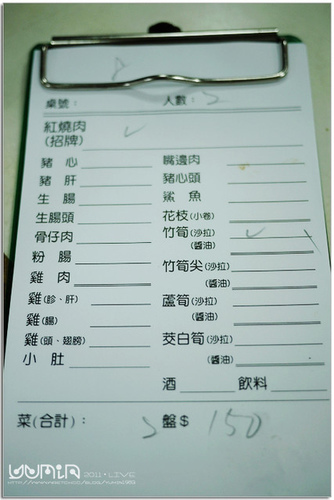 桌號： 人數：2
紅燒肉 ✓
(招牌)
豬 心 嘴邊肉
豬 肝 豬心頭
生 腸 鯊 魚
生腸頭 花枝(小卷)
骨仔肉 竹筍(沙拉) ✓
(醬油)
粉 腸
竹筍尖(沙拉)
雞 肉 (醬油)
雞(胗、肝) 蘆筍(沙拉)
(醬油)
雞(腸)
雞(頭、翅膀) 茭白筍(沙拉)
小 肚 (醬油)
酒 飲料
菜(合計)： 2 盤$ 150
YUMIN 2011 LIVE